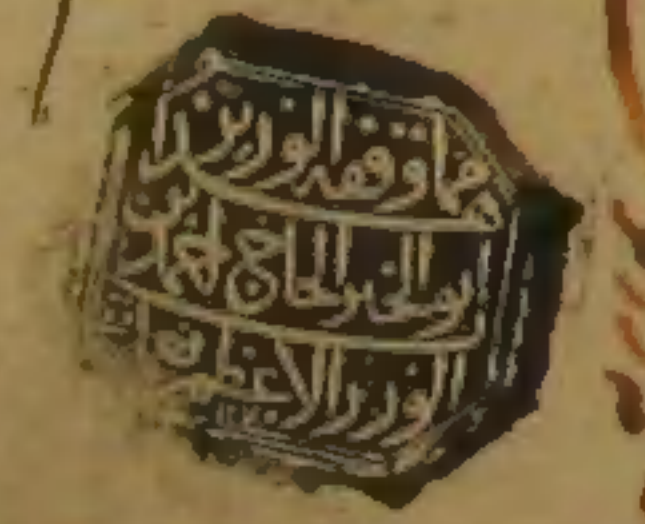 مما وقفه الوزير
ابو الخير الحاج احمد بن
الوزير الاعظم نعمان